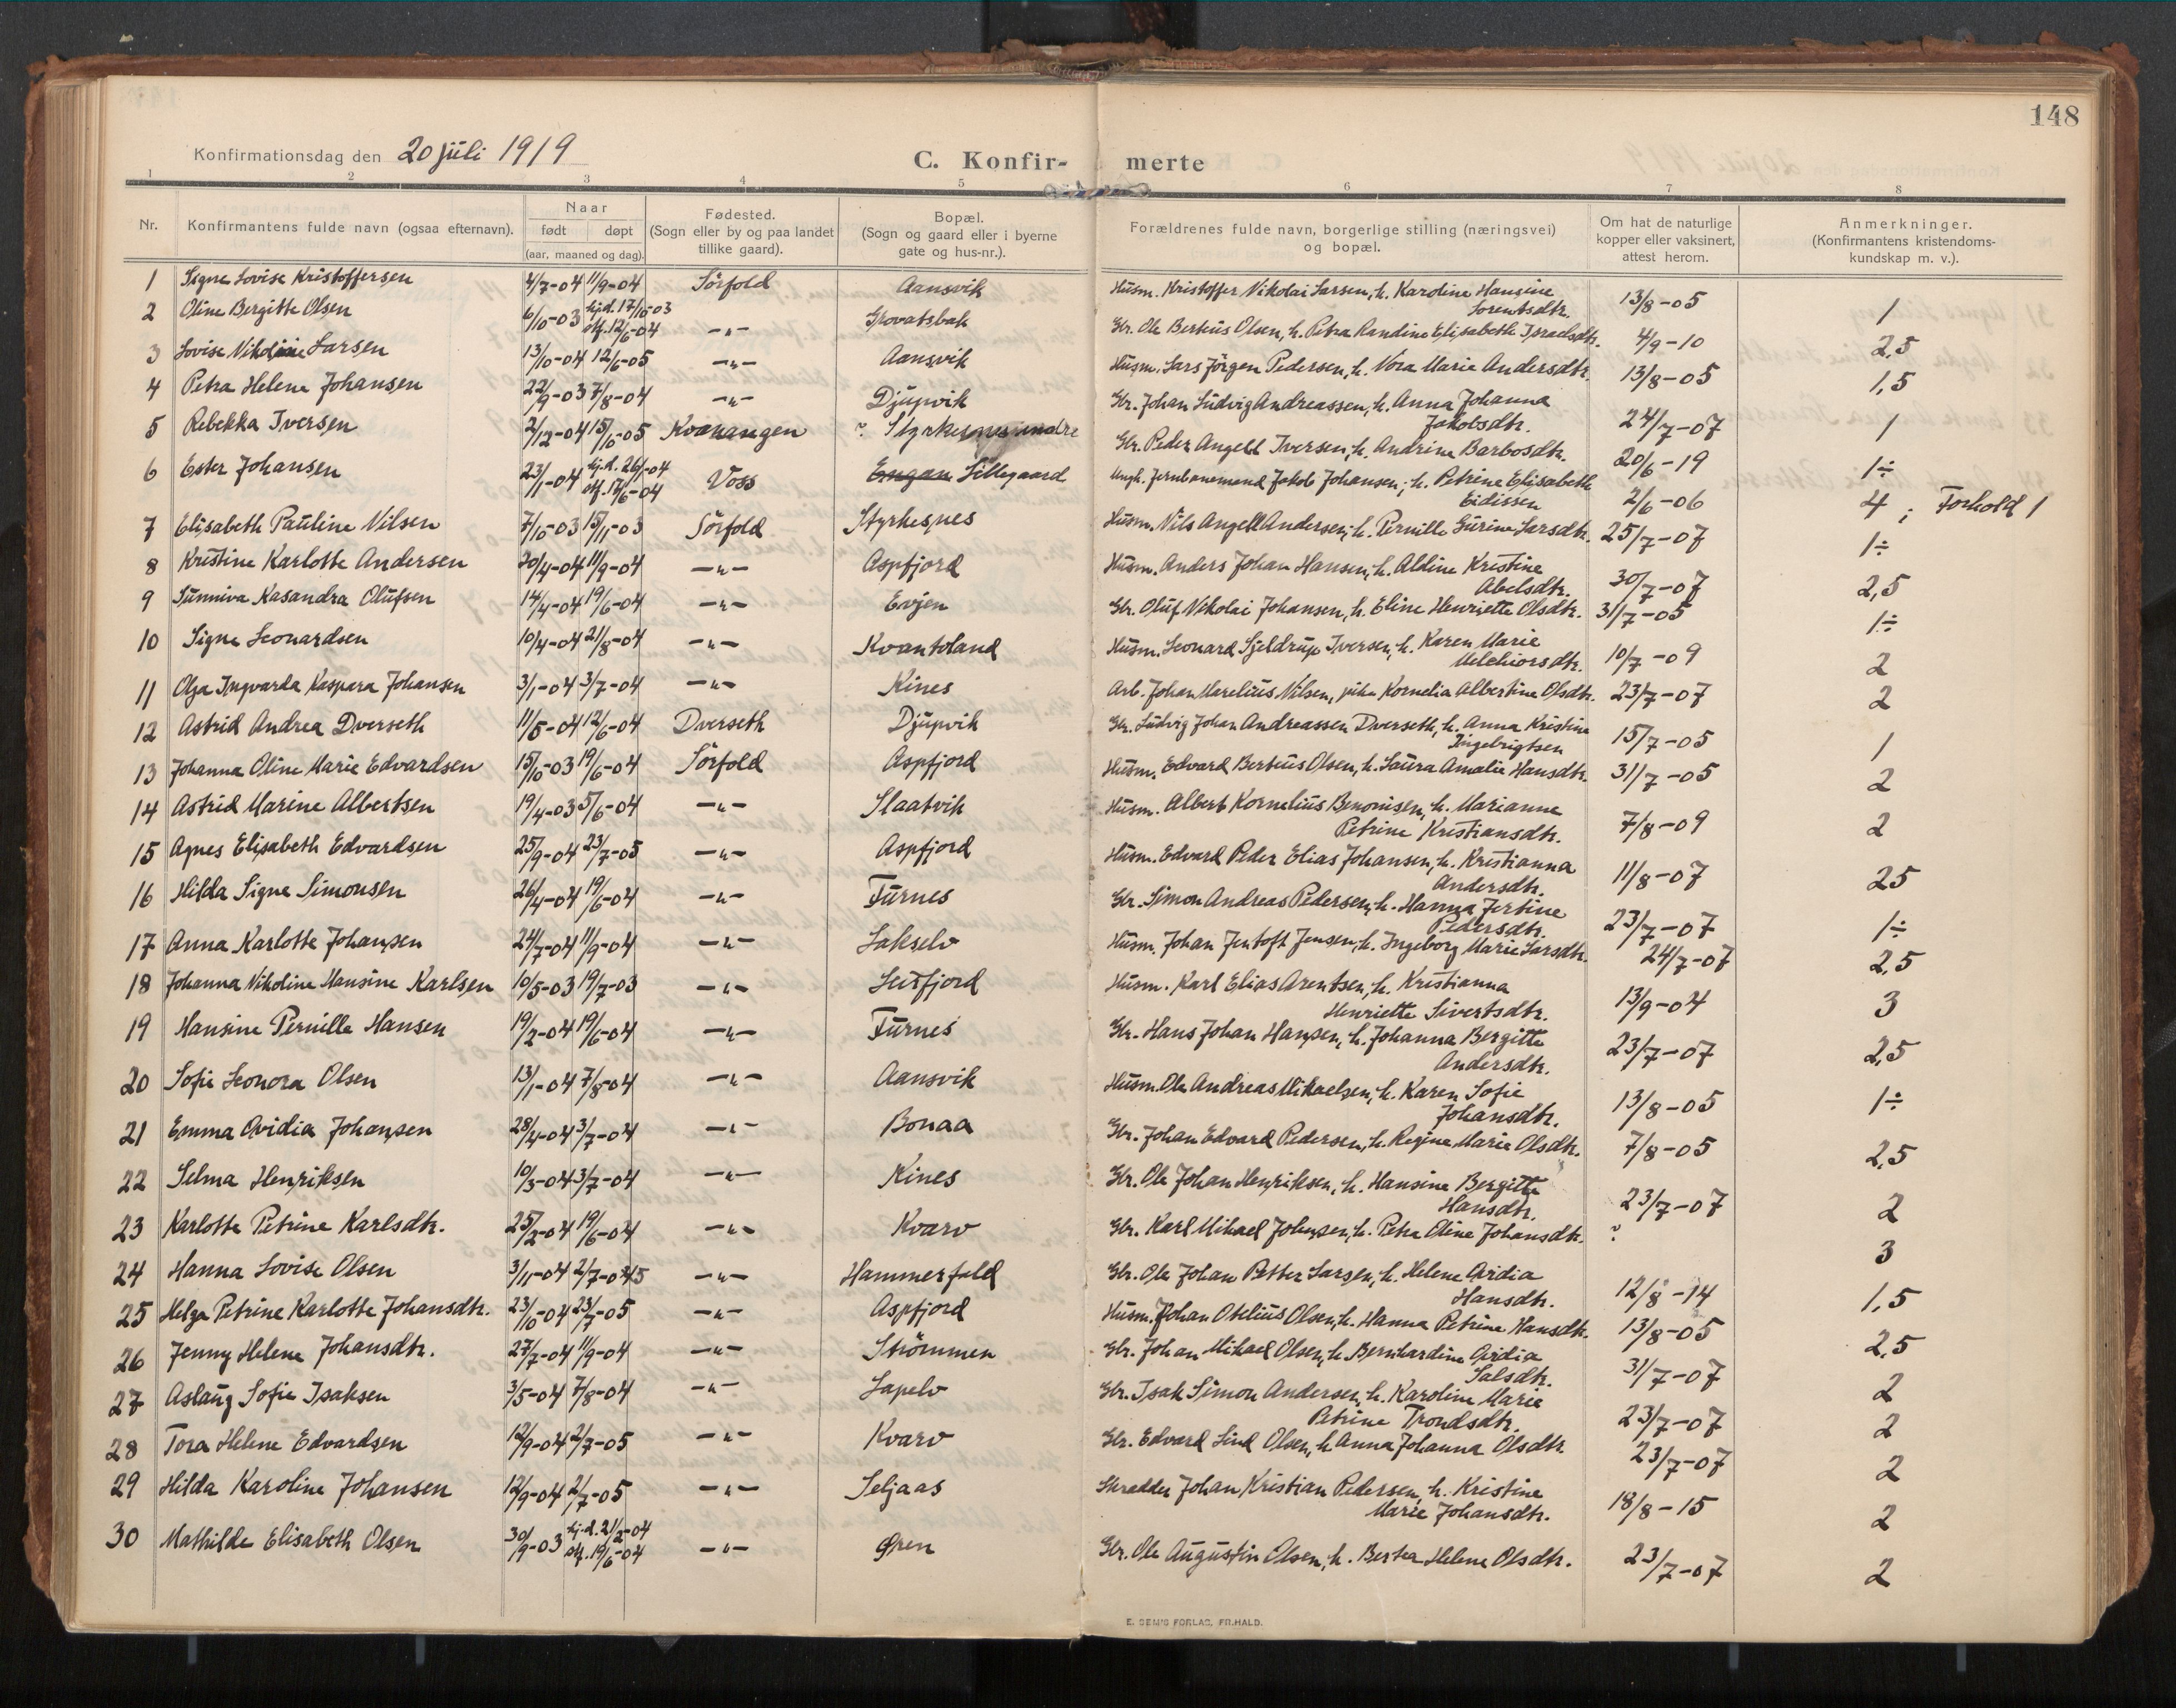 148
Konfirmationsdag den 20 juli 1919
C. Konfir- merte
1 2 3 4 5 6 7 8
Nr.
Konfirmantens fulde navn (ogsaa efternavn).
Naar
født døpt
(aar, maaned og dag).
Fødested.
(Sogn eller by og paa landet
tillike gaard).
Bopæl.
(Sogn og gaard eller i byerne
gate og hus-nr.).
Forældrenes fulde navn, borgerlige stilling (næringsvei)
og bopæl.
Om hat de naturlige
kopper eller vaksinert,
attest herom.
Anmerkninger.
(Konfirmantens kristendoms-
kundskap m. v.).
1 Signe Lovise Kristoffersen 4/7-04 11/9-04 Sörfold Aansvik Husm. Kristoffer Nikolai Larsen, h. Karoline Hansine
Lorentsdtr. 13/8-05 1
2 Oline Bergitte Olsen 6/10-03 hj.d. 17/10-03
stf. 12/6-04 -"- Grovatsbak Gbr. Ole Berteus Olsen, h. Petra Randine Elisabeth Israelsdtr. 4/9-10 2,5
3 Lovise Nikoline Larsen 13/10-04 12/6-05 -"- Aansvik Husm. Lars Jörgen Pedersen, h. Nora Marie Andersdtr. 13/8-05 1,5
4 Petra Helene Johansen 22/9-03 7/8-04 -"- Djupvik Gbr. Johan Ludvig Andreassen, h. Anna Johanna
Jakobsdtr. 24/7-07 1
5 Rebekka Iversen 2/12-04 15/6-05 Kvænangen v. Styrkesnes indre Gbr. Peder Angell Iversen, h. Andrine Barbosdtr. 20/6-19 1÷
6 Ester Johansen 23/1-04 hj.d. 26/1-04
stf. 17/6-04 Voss Engan Lillegaard Ungk. Jernbanemand Jakob Johansen, h. Petrine Elisabeth
Eidissen 2/6-06 4 ; Forhold 1
7 Elisabeth Pauline Nilsen 7/10-03 15/11-03 Sörfold Styrkesnes Husm. Nils Angell Andersen, h. Pernille Gurine Larsdtr. 25/7-07 1÷
8 Kristine Karlotte Andersen 20/4-04 11/9-04 -"- Aspfjord Husm. Anders Johan Hansen, h. Aldine Kristine
Abelsdtr. 30/7-07 2,5
9 Sunniva Kasandra Olufsen 14/4-04 19/6-04 -"- Evjen Gbr. Oluf Nikolai Johansen, h. Eline Henriette Olsdtr. 31/7-05 1÷
10 Signe Leonardsen 10/4-04 21/8-04 -"- Kvantoland Husm. Leonard Sjeldrup Iversen, h. Karen Marie
Melchiorsdtr. 10/7-09 2
11 Olga Ingvarda Kaspara Johansen 3/1-04 3/7-04 -"- Kines Arb. Johan Marelius Nilsen, pike Kornelia Albertine Olsdtr. 23/7-07 2
12 Astrid Andrea Dverseth 11/5-04 12/6-04 Dverseth Djupvik Gbr. Ludvig Johan Andreassen Dverseth, h. Anna Kristine
Ingebrigtsen 15/7-05 1
13 Johanna Oline Marie Edvardsen 15/10-03 19/6-04 Sörfold Aspfjord Husm. Edvard Berteus Olsen, h. Laura Amalie Hansdtr. 31/7-05 2
14 Astrid Marine Albertsen 19/4-03 5/6-04 -"- Slaatvik Husm. Albert Kornelius Benonisen, h. Marianne
Petrine Kristiansdtr. 7/8-09 2
15 Agnes Elisabeth Edvardsen 25/9-04 23/7-05 -"- Aspfjord Husm. Edvard Peder Elias Johansen, h. Kristianna
Andersdtr. 11/8-07 25
16 Hilda Signe Simonsen 26/4-04 19/6-04 -"- Furnes Gbr. Simon Andreas Pedersen, h. Hanna Jertine
Pedersdtr. 23/7-07 1÷
17 Anna Karlotte Johansen 24/7-04 11/9-04 -"- Lakselv Husm. Johan Jentoft Jensen, h. Ingeborg Marie Larsdtr. 24/7-07 2,5
18 Johanna Nikoline Hansine Karlsen 10/5-03 19/7-03 -"- Leitfjord Husm. Karl Elias Arentsen, h. Kristianna
Henriette Sivertsdtr. 13/9-04 3
19 Hansine Pernille Hansen 19/2-04 19/6-04 -"- Furnes Gbr. Hans Johan Hansen, h. Johanna Bergitte
Andersdtr. 23/7-07 2,5
20 Sofie Leonora Olsen 13/1-04 7/8-04 -"- Aansvik Husm. Ole Andreas Mikaelsen, h. Karen Sofie
Johansdtr. 13/8-05 1÷
21 Emma Ovidia Johansen 28/4-04 3/7-04 -"- Bonaa Gbr. Johan Edvard Pedersen, h. Regine Marie Olsdtr. 7/8-05 2,5
22 Selma Henriksen 10/3-04 3/7-04 -"- Kines Gbr. Ole Johan Henriksen, h. Hansine Bergitte
Hansdtr. 23/7-07 2
23 Karlotte Petrine Karlsdtr. 25/2-04 19/6-04 -"- Kvarv Gbr. Karl Mikael Johansen, h. Petra Oline Johansdtr. ? 3
24 Hanna Lovise Olsen 3/11-04 2/7-045 -"- Hammerfald Gbr. Ole Johan Petter Larsen, h. Helene Ovidia
Hansdtr. 12/8-14 1,5
25 Helga Petrine Karlotte Johansdtr. 23/10-04 23/7-05 -"- Aspfjord Husm. Johan Otelius Olsen, h. Hanna Petrine Hansdtr. 13/8-05 2,5
26 Jenny Helene Johansdtr. 27/7-04 11/9-04 -"- Strömmen Gbr. Johan Mikael Olsen, h. Bernhardine Ovidia
Salsdtr. 31/7-07 2
27 Aslaug Sofie Isaksen 3/5-04 7/8-04 -"- Lapelv Gbr. Isak Simon Andersen, h. Karoline Marie
Petrine Trondsdtr. 23/7-07 2
28 Tora Helene Edvardsen 12/9-04 2/7-05 -"- Kvarv Gbr. Edvard Lind Olsen, h. Anna Johanna Olsdtr. 23/7-07 2
29 Hilda Karoline Johansen 12/9-04 2/7-05 -"- Seljaas Skrædder Johan Kristian Pedersen, h. Kristine
Marie Johansdtr. 18/8-15 2
30 Mathilde Elisabeth Olsen 30/9-03 hj.d. 21/2-04
stf. 19/6-04 -"- Øren Gbr. Ole Augustin Olsen, h. Berta Helene Olsdtr. 23/7-07 2
E. SEM'S FORLAG, FR.HALD.